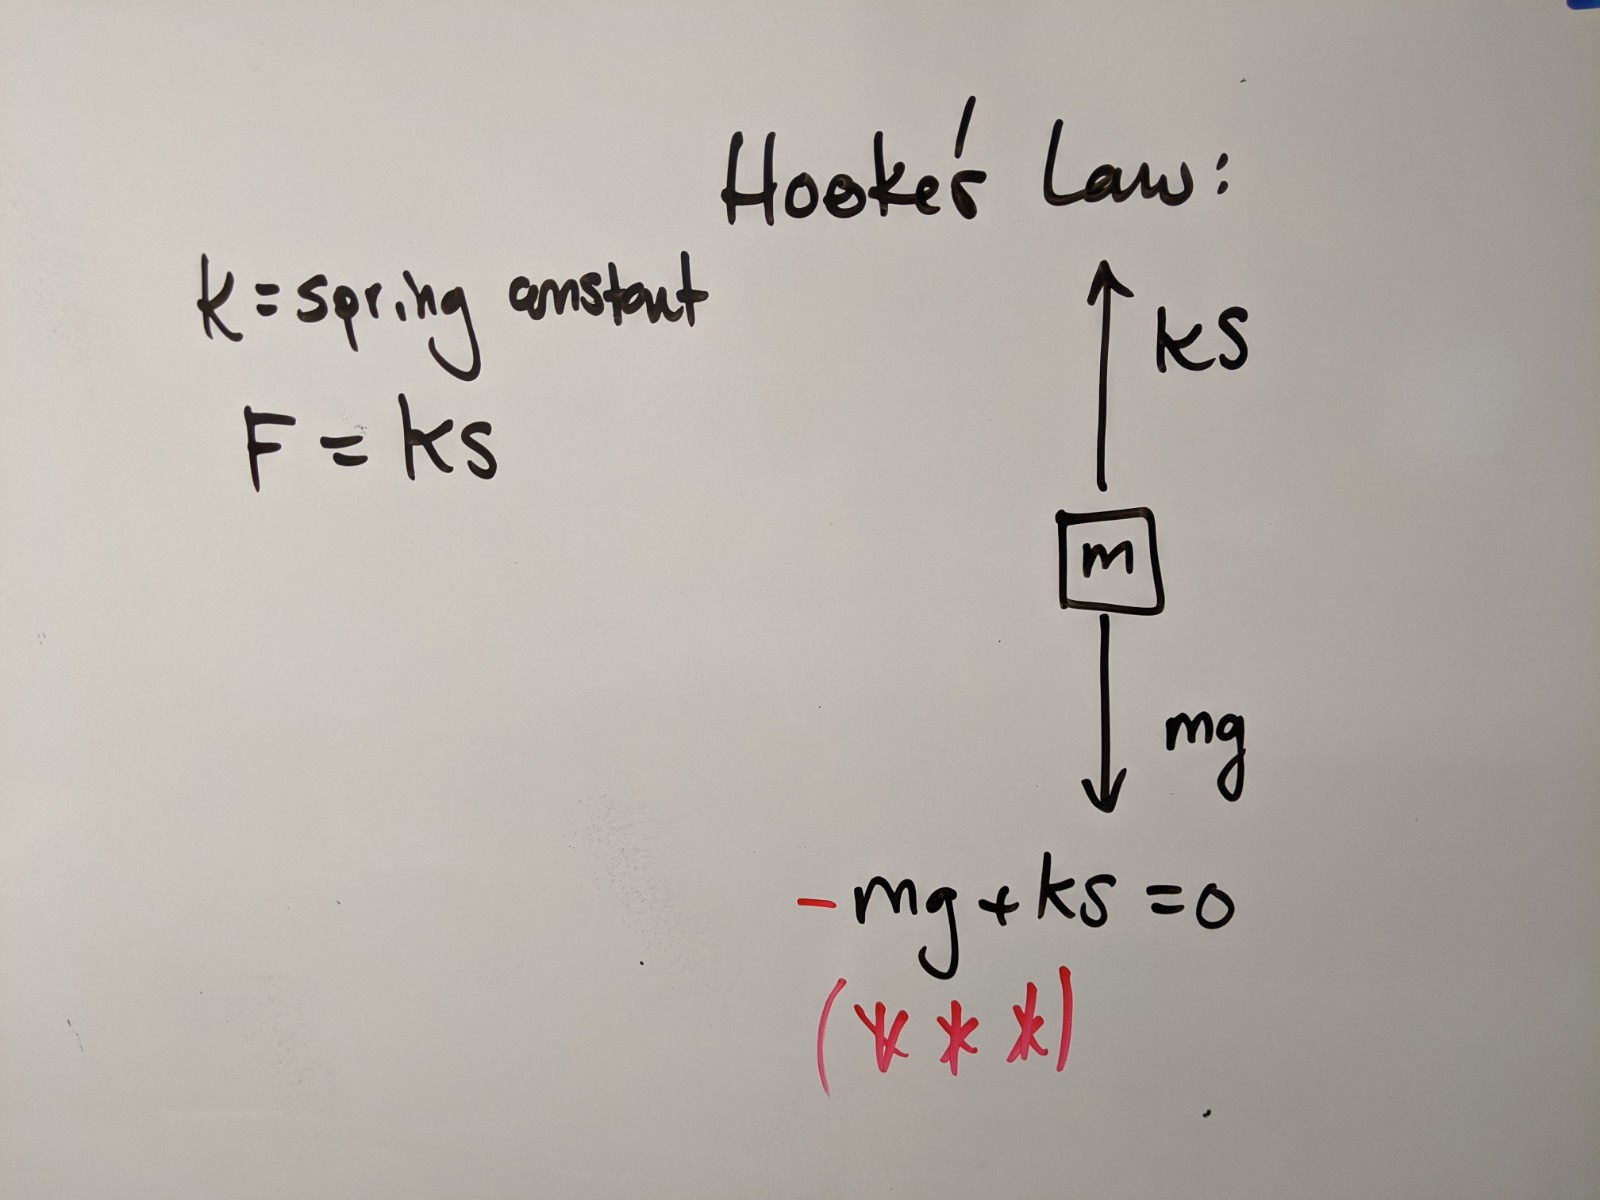 Hooke's Law:
k = spring constant
F = ks
ks
m
mg
- mg + ks = 0
(* * *)